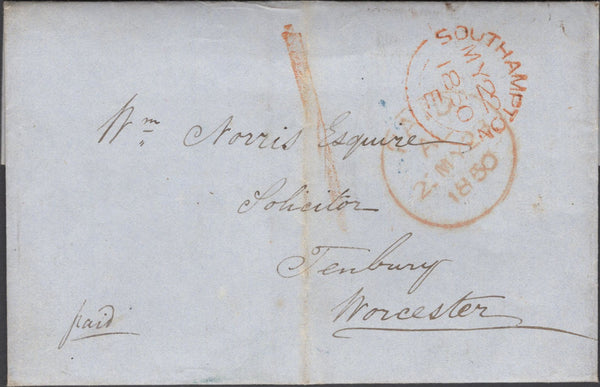 SOUTHAMPTON
MY 22
1850
MY
1850
Wm Norris Esquire
Solicitor
Tenbury
Worcester
paid